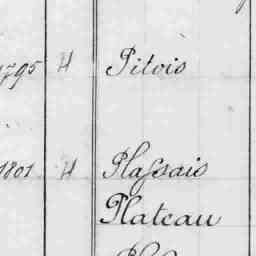 1795 H Pitois
1801 H Plaſsais
Plateau